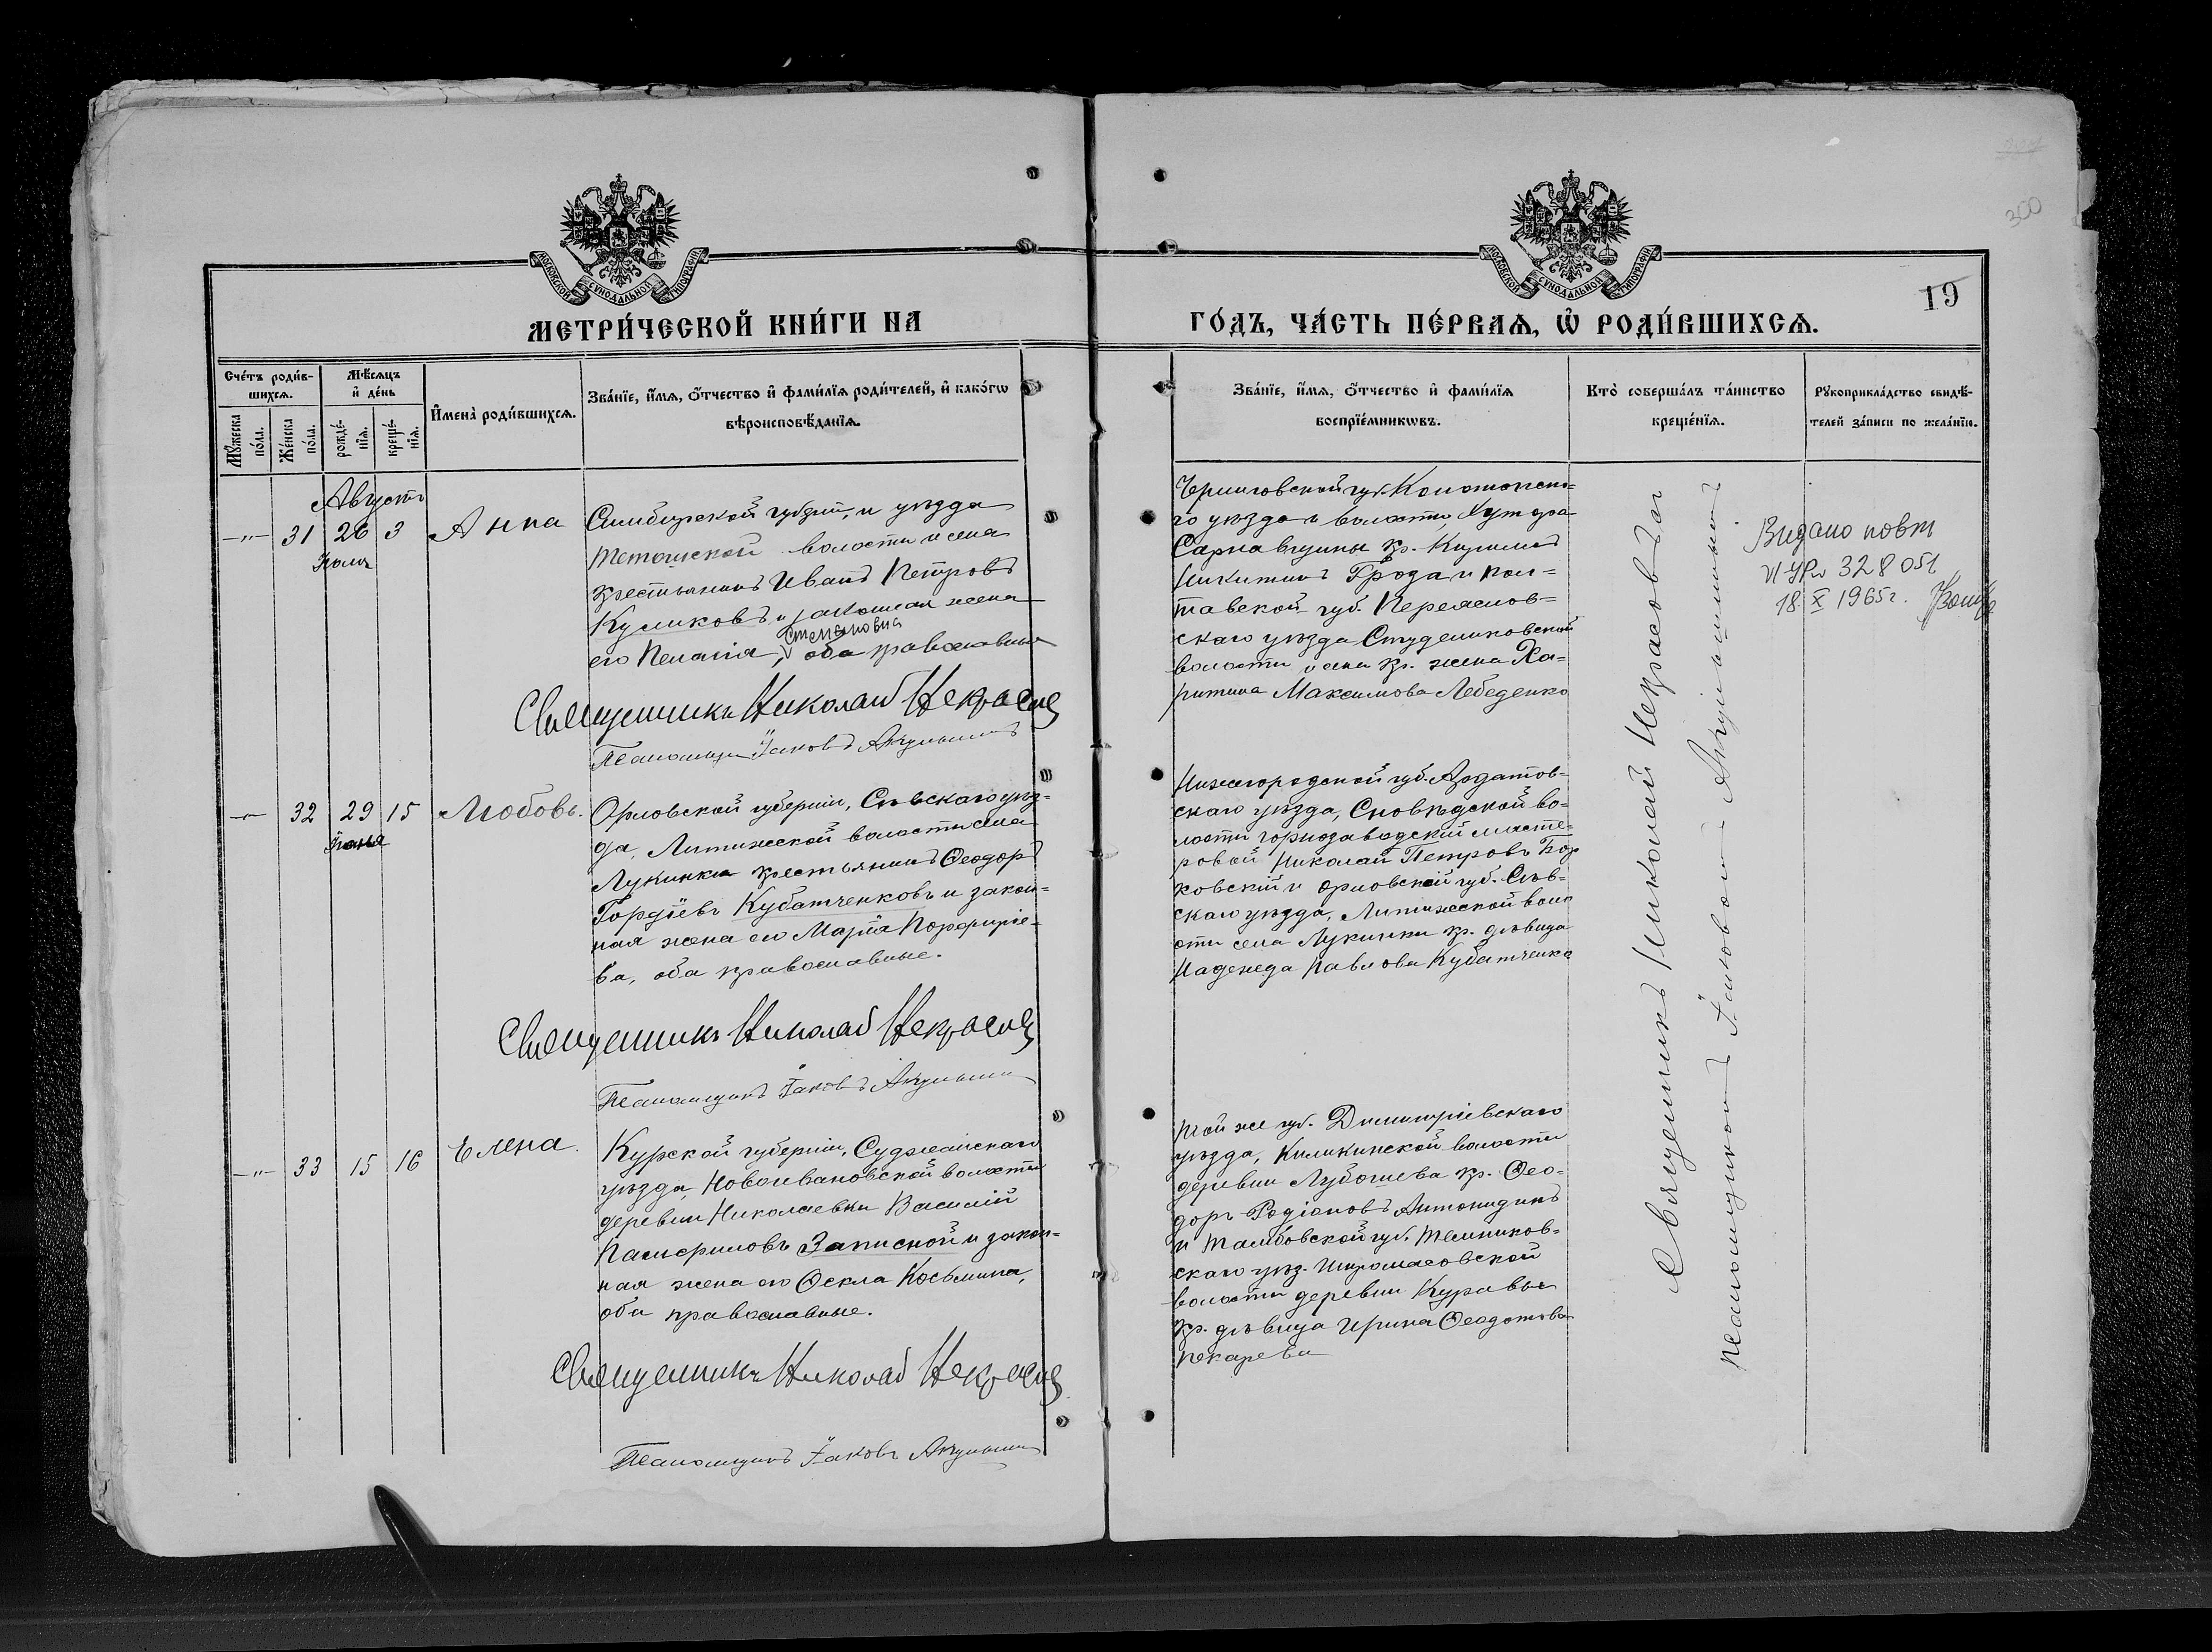 300
19
МОСКОВСКОЙ СѴНОДАЛЬНОЙ ТИПОГРАФІИ
МОСКОВСКОЙ СѴНОДАЛЬНОЙ ТИПОГРАФІИ
МЕТРИ́ЧЕСКОЙ КНИ́ГИ НА
ГО́ДЪ, ЧА́СТЬ ПЕ́РВАѦ, Ѽ РОДИ́ВШИХСѦ.
Сче́тъ роди́в-
шихсѧ.
Мѣ́сѧцъ
и҆ де́нь
Мꙋ́жеска
по́ла.
Же́нска
по́ла.
рожде́-
нїѧ.
креще́-
нїѧ.
И҆мена̀ роди́вшихсѧ.
Зва́нїе, и҆́мѧ, ѻ҆́тчество и҆ фами́лїѧ роди́телей, и҆ како́гѡ
вѣроисповѣ́данїѧ.
Зва́нїе, и҆́мѧ, ѻ҆́тчество и҆ фами́лїѧ
воспрїе́мникѡвъ.
Кто̀ соверша́лъ та́инство
креще́нїѧ.
Рꙋкоприкла́дство свидѣ́-
телей за́писи по жела́нїю.
Августъ
-"- 31 26 3 Анна
Іюля
Симбирской губерн., и уѣзда
Тетюшской волости и села
крестьянинъ Иванъ Петровъ
Куликовъ и законная жена
Степановна
его Пелагія, оба православные
Священникъ Николай Некрасовъ
Псаломщикъ Іаковъ Акульшинъ
Черниговской губ. Конотопска-
го уѣзда и волости, Хутора
Сарнавщины кр. Кирилъ
Никитинъ Брода и Пол-
тавской губ. Переяслов-
скаго уѣзда Студениковской
волости и села кр. жена Ха-
ритина Максимова Лебеденко
Видано повт
18 X 1965г.
-"- 32 29 15 Любовь.
Іюня
Орловской губерніи, Сѣвскаго уѣз-
да, Литижской волости села
Лукинки крестьянинъ Ѳеодоръ
Гордіевъ Кубатченковъ и закон-
ная жена его Марія Порфиріе-
ва, оба православные.
Священникъ Николай Некрасовъ
Псаломщикъ Іаковъ Акульшинъ
Нижегородской губ. Ардатов-
скаго уѣзда, Сновѣдской во-
лости горнозаводскій масте-
ровой Николай Петровъ Бор
ковскій и Орловской губ. Сѣв-
скаго уѣзда, Литижской воло
сти села Лукинки кр. дѣвица
Надежда Павлова Кубатченко
-"- 33 15 16 Елена.
Курской губерніи, Суджанскаго
уѣзда, Новоивановской волости
деревни Николаевки Василій
Памфиловъ Записной и закон-
ная жена его Ѳекла Косьмина,
оба православные.
Священникъ Николай Некрасовъ
Псаломщикъ Іаковъ Акульшинъ
той же губ. Димитріевскаго
уѣзда, Киликинской волости
деревни Лубошева кр. Ѳео-
доръ Родіоновъ Антонидинъ
и Тамбовской губ. Темников-
скаго уѣз. Широмасовской
волости деревни Куравы
кр. дѣвица Ирина Ѳеодотова
Пекарева
Священникъ Николай Некрасовъ со
псаломщикомъ Іаковомъ Акульшинымъ